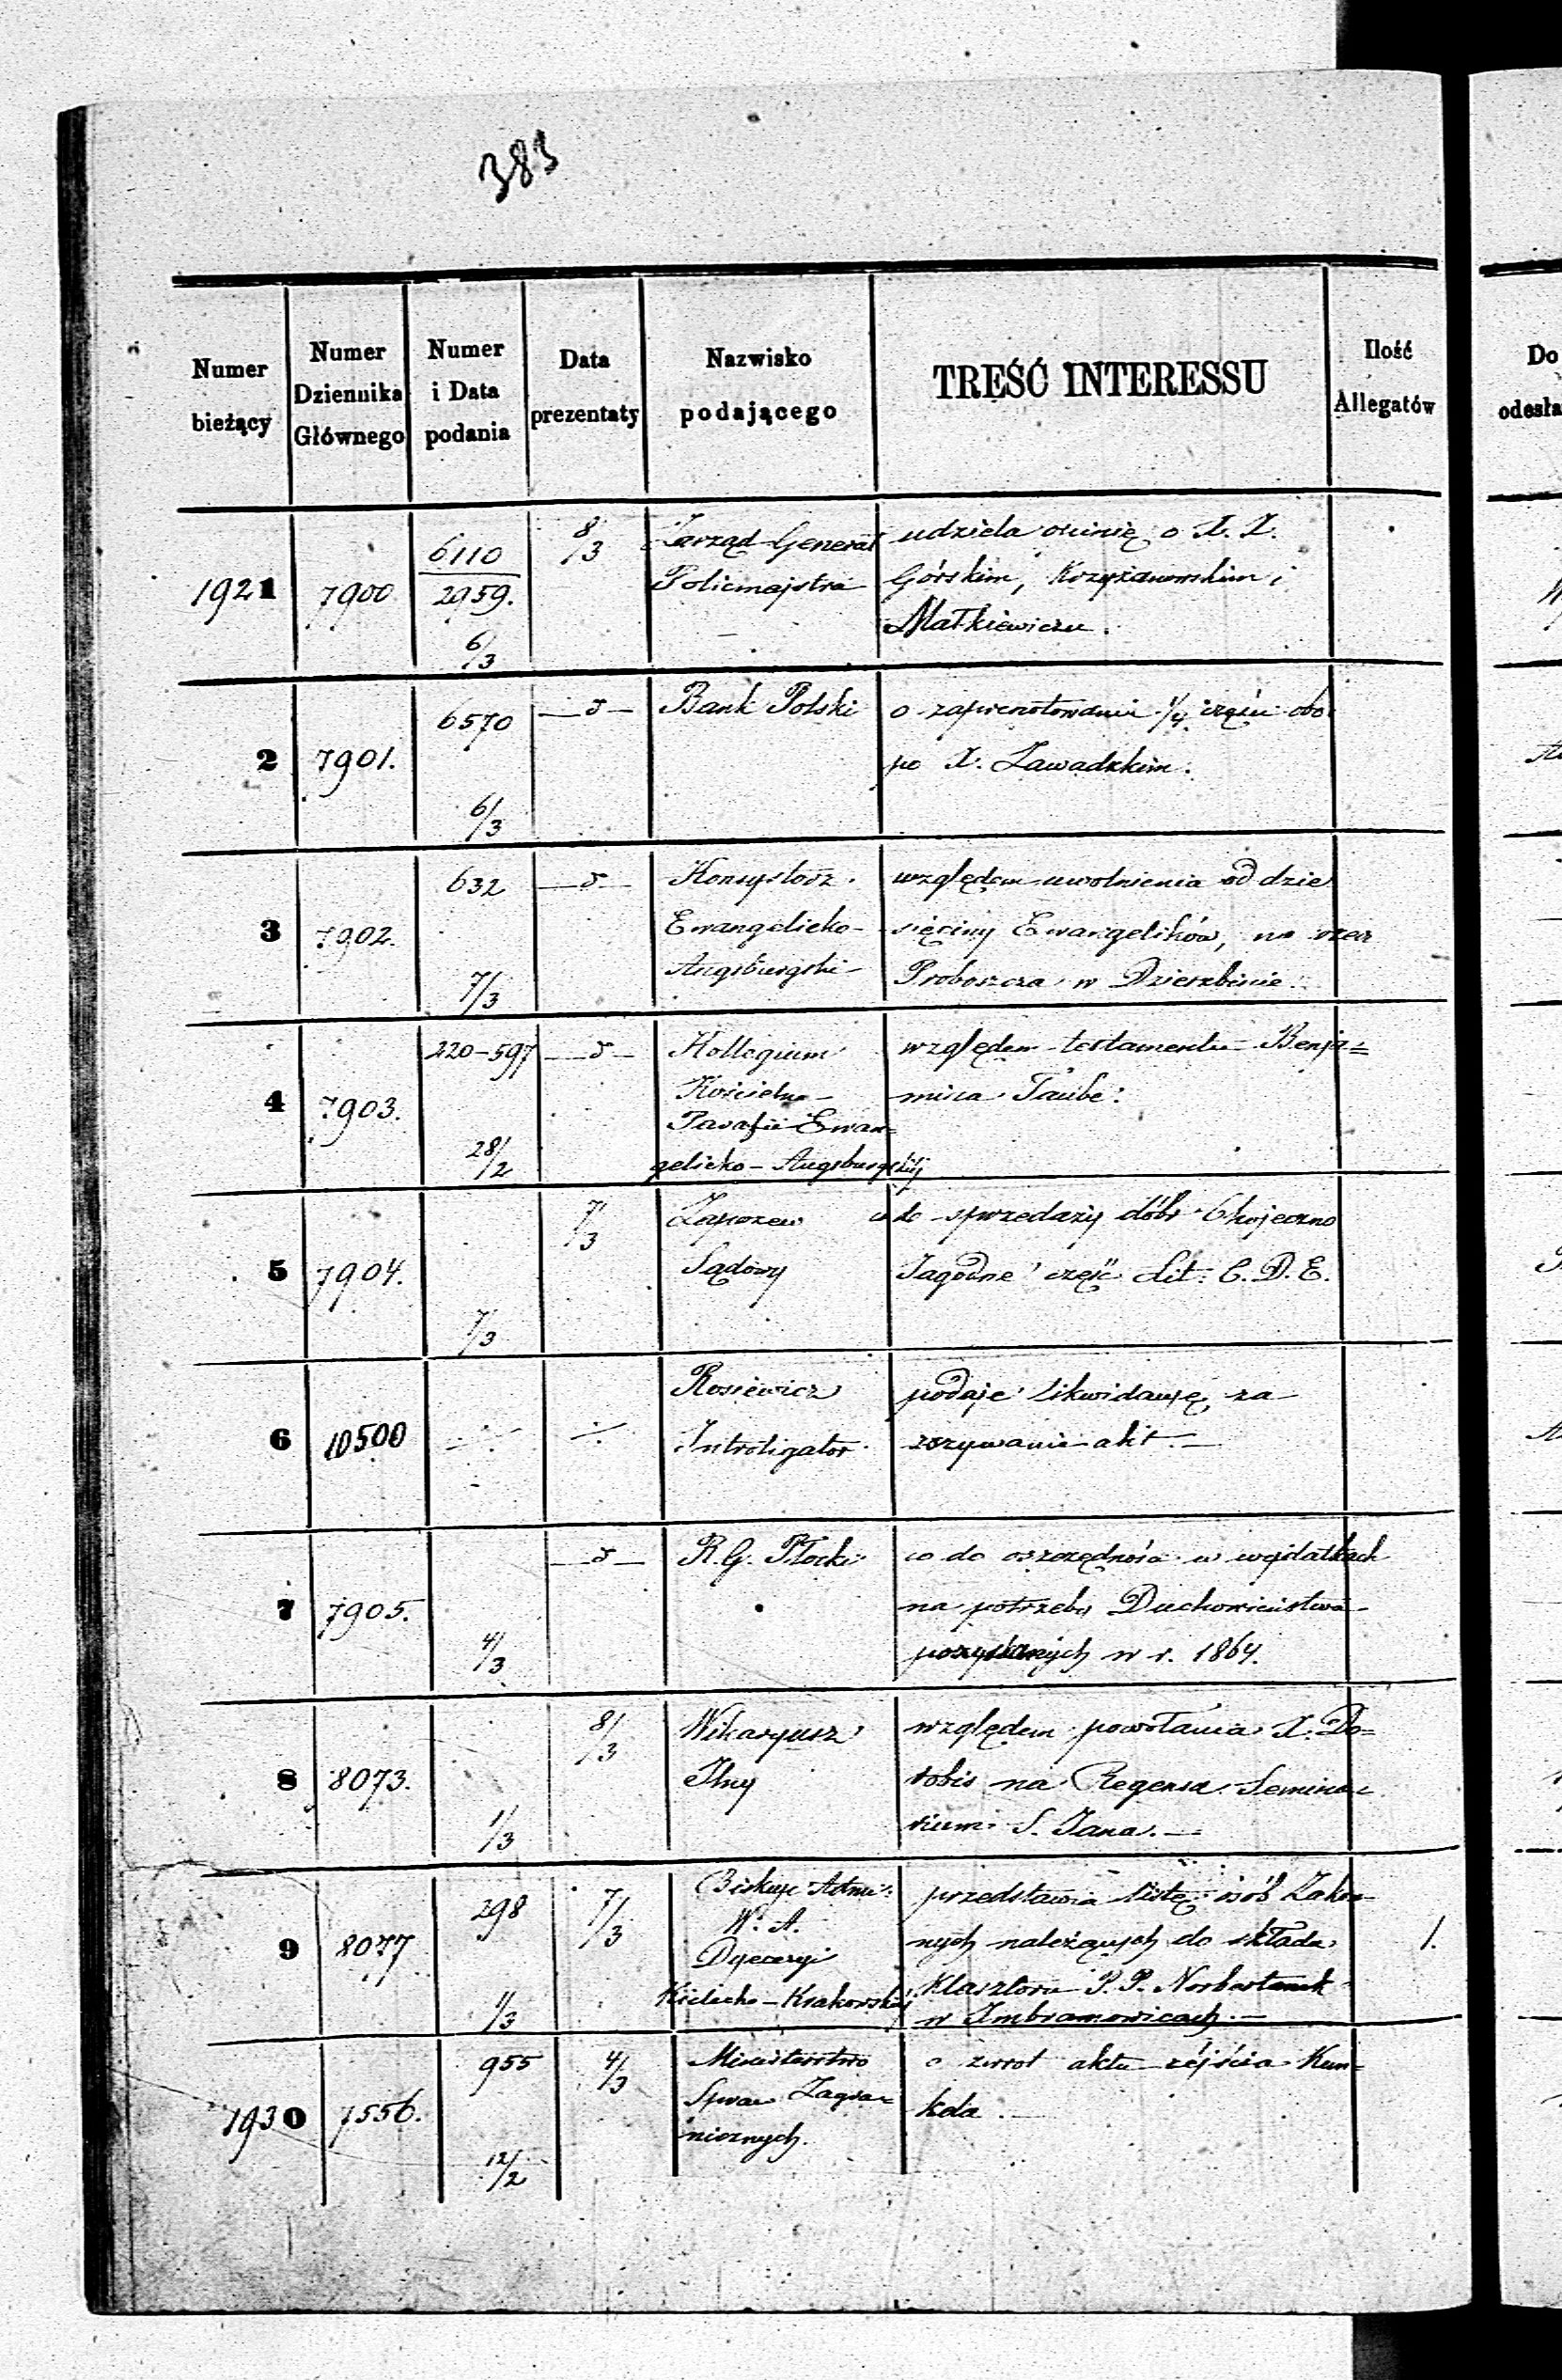 383
Numer bieżący | Numer Dziennika Głównego | Numer i Data podania | Data prezentaty | Nazwisko podającego | TREŚĆ INTERESSU | Ilość Allegatów | Do odesła
1921 | 7900 | 6110/2959. 6/3 | 8/3 | Zarząd Generał | udziela opinię o X. X.
Policmajstra | Górskim, Krzyżanowskim i
Małkiewiczu.
2 | 7901. | 6570 6/3 | —d— | Bank Polski | o zaprenotowaniu 1/4 części obo
po X. Zawadzkim.
3 | 7902. | 632 7/3 | —d— | Konsystorz | względem uwolnienia od dzie
Ewangelicko- | sięciny Ewangelików, na rzecz
Augsburgski | Proboszcza w Dzierzbinie.
4 | 7903. | 220-597 28/2 | —d— | Kollegium | względem testamentu Benja=
Kościelne | mina Taube.
Parafii Ewan=
gelicko-Augsburgskiej
5 | 7904. | 7/3 | 7/3 | Zapozew | co do sprzedaży dóbr Chojeczno
Sądowy | Jagodne część Lit. C. D. E.
6 | 10500 | Rosiewicz | podaje likwidacyę za
Introligator | zszywanie akt.—
7 | 7905. | 4/3 | —d— | R. G. Płocki | co do oszczędności w wydatkach
na potrzeby Duchowieństwa
w r. 1864.
8 | 8073. | 1/3 | 8/3 | Wikaryusz | względem powołania X. Do=
Jlny | tobis na Regensa Semina=
rium S. Jana.—
9 | 8077 | 298 1/3 | 7/3 | Biskup Adm: | przedstawia listę osób Zakon | 1.
W. A. | nych należących do składu
Dyecezyi | Klasztoru P. P. Norbertanek
Kielecko-Krakowskiej | w Imbramowicach.—
1930 | 7556. | 955 12/2 | 4/3 | Ministerstwo | o zwrot aktu zejścia Kun=
Spraw Zagra= | kela.—
nicznych.